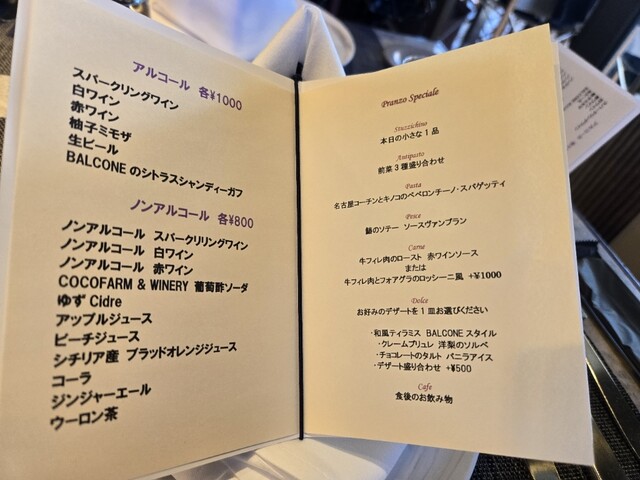 アルコール 各¥1000
スパークリングワイン
白ワイン
赤ワイン
柚子ミモザ
生ビール
BALCONE のシトラスシャンディーガフ
ノンアルコール 各¥800
ノンアルコール スパークリリングワイン
ノンアルコール 白ワイン
ノンアルコール 赤ワイン
COCOFARM & WINERY 葡萄酢ソーダ
ゆず Cidre
アップルジュース
ピーチジュース
シチリア産 ブラッドオレンジジュース
コーラ
ジンジャーエール
ウーロン茶
Pranzo Speciale
Stuzzichino
本日の小さな1品
Antipasto
前菜3種盛り合わせ
Pasta
名古屋コーチンとキノコのペペロンチーノ・スパゲッティ
Pesce
鰆のソテー ソースヴァンブラン
Carne
牛フィレ肉のロースト 赤ワインソース
または
牛フィレ肉とフォアグラのロッシーニ風 +¥1000
Dolce
お好みのデザートを1皿お選びください
・和風ティラミス BALCONE スタイル
・クレームブリュレ 洋梨のソルベ
・チョコレートのタルト バニラアイス
・デザート盛り合わせ +¥500
Cafe
食後のお飲み物